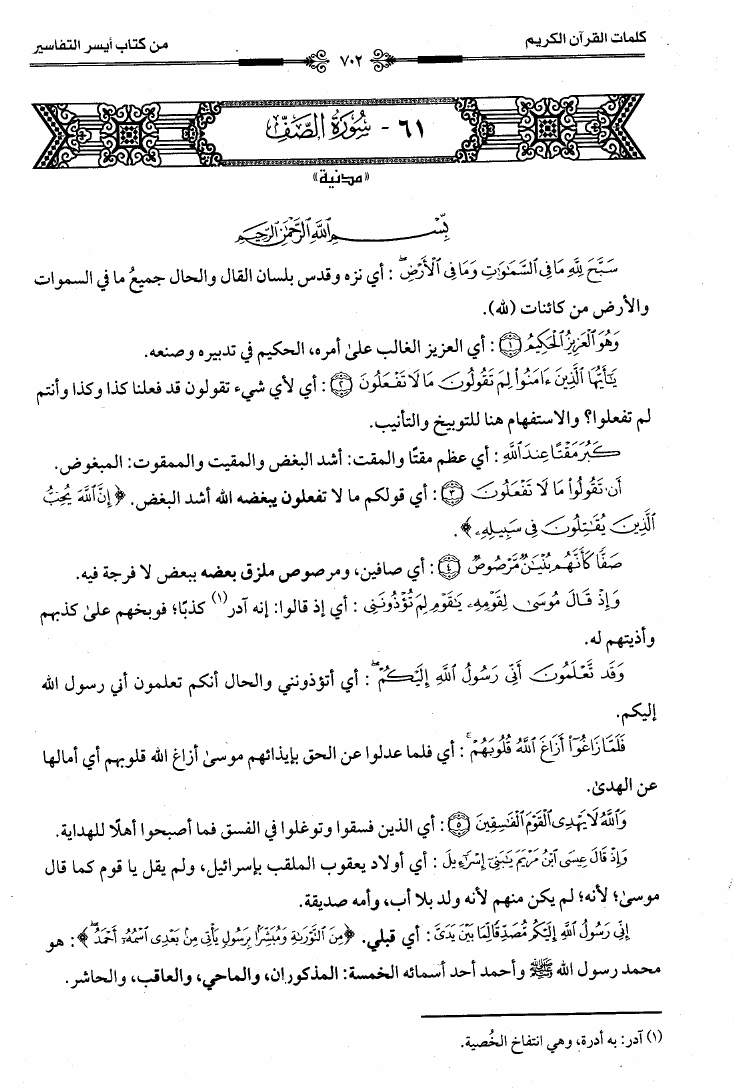 كلمات القرآن الكريم
٧٠٢
من كتاب أيسر التفاسير
٦١ - سُورَةُ الصَّفِّ
«مدنية»
بِسْمِ ٱللَّهِ ٱلرَّحْمَٰنِ ٱلرَّحِيمِ
سَبَّحَ لِلَّهِ مَا فِي ٱلسَّمَٰوَٰتِ وَمَا فِي ٱلْأَرْضِۖ : أي نزه وقدس بلسان القال والحال جميعُ ما في السموات
والأرض من كائنات (لله).
وَهُوَ ٱلْعَزِيزُ ٱلْحَكِيمُ ۝١ : أي العزيز الغالب علىٰ أمره، الحكيم في تدبيره وصنعه.
يَٰٓأَيُّهَا ٱلَّذِينَ ءَامَنُوا۟ لِمَ تَقُولُونَ مَا لَا تَفْعَلُونَ ۝٢ : أي لأي شيء تقولون قد فعلنا كذا وكذا وأنتم
لم تفعلوا؟ والاستفهام هنا للتوبيخ والتأنيب.
كَبُرَ مَقْتًا عِندَ ٱللَّهِ : أي عظم مقتًا والمقت: أشد البغض والمقيت والممقوت: المبغوض.
أَن تَقُولُوا۟ مَا لَا تَفْعَلُونَ ۝٣ : أي قولكم ما لا تفعلون يبغضه الله أشد البغض. ﴿إِنَّ ٱللَّهَ يُحِبُّ
ٱلَّذِينَ يُقَٰتِلُونَ فِي سَبِيلِهِۦ﴾.
صَفًّا كَأَنَّهُم بُنْيَٰنٌ مَّرْصُوصٌ ۝٤ : أي صافين، ومرصوص ملزق بعضه ببعض لا فرجة فيه.
وَإِذْ قَالَ مُوسَىٰ لِقَوْمِهِۦ يَٰقَوْمِ لِمَ تُؤْذُونَنِي : أي إذ قالوا: إنه آدر(١) كذبًا؛ فوبخهم علىٰ كذبهم
وأذيتهم له.
وَقَد تَّعْلَمُونَ أَنِّي رَسُولُ ٱللَّهِ إِلَيْكُمْۖ : أي أتؤذونني والحال أنكم تعلمون أني رسول الله
إليكم.
فَلَمَّا زَاغُوٓا۟ أَزَاغَ ٱللَّهُ قُلُوبَهُمْۚ : أي فلما عدلوا عن الحق بإيذائهم موسىٰ أزاغ الله قلوبهم أي أمالها
عن الهدىٰ.
وَٱللَّهُ لَا يَهْدِي ٱلْقَوْمَ ٱلْفَٰسِقِينَ ۝٥ : أي الذين فسقوا وتوغلوا في الفسق فما أصبحوا أهلًا للهداية.
وَإِذْ قَالَ عِيسَى ٱبْنُ مَرْيَمَ يَٰبَنِيٓ إِسْرَٰٓءِيلَ : أي أولاد يعقوب الملقب بإسرائيل، ولم يقل يا قوم كما قال
موسىٰ؛ لأنه؛ لم يكن منهم لأنه ولد بلا أب، وأمه صديقة.
إِنِّي رَسُولُ ٱللَّهِ إِلَيْكُم مُّصَدِّقًا لِّمَا بَيْنَ يَدَيَّ : أي قبلي. ﴿مِنَ ٱلتَّوْرَىٰةِ وَمُبَشِّرًۢا بِرَسُولٍ يَأْتِي مِنۢ بَعْدِي ٱسْمُهُۥٓ أَحْمَدُۖ﴾ : هو
محمد رسول الله ﷺ وأحمد أحد أسمائه الخمسة: المذكوران، والماحي، والعاقب، والحاشر.
(١) آدر: به أدرة، وهي انتفاخ الخُصية.